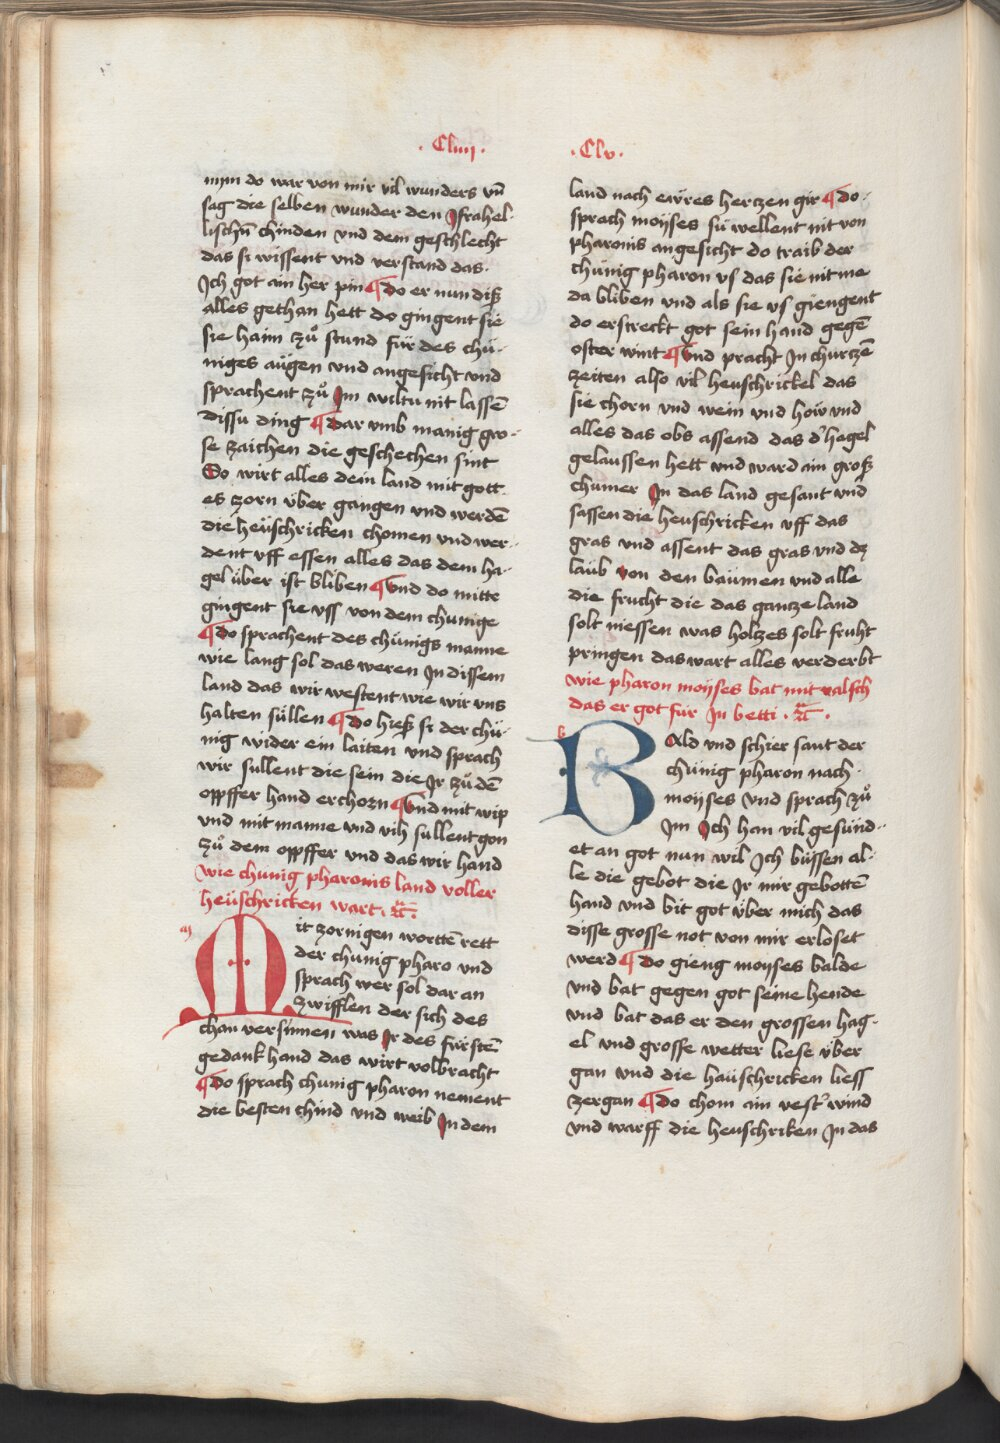 · Cliiij ·
mým do war von mir vil wunders vn̄
sag die selben wunder den Jsrahel·
lischn̄ chinden vnd dem geschlecht
das si wissent vnd verstand das·
Jch got ain her pin ¶ do er nun diß
alles gethan hett do gingent sie
sie haim zů stund für des chü-
niges aügen vnd angesicht vnd
sprachent zů Jm wiltu nit lassē
dissu ding ¶ dar vmb manig gro-
se zaichen die geschechen sint
So wirt alles dein land mit gott·
es zorn über gangen vnd werdē
die heüschricken chomen vnd wer-
dent vff essen alles das dem ha-
gel über ist bliben ¶ vnd do mitte
gingent sie vss von dem chunige
¶ do sprachent des chünigs manne
wie lang sol das weren Jn dissem
land das wir westent wie wir vns
halten süllen ¶ do hieß si der chü-
nig wider ein laiten vnd sprach
wir sullent die sein die Jr zů dē
oppffer hand erchozn ¶ vnd mit wip
vnd mit manne vnd vih sullent gon
zů dem oppffer vnd das wir hand
wie chunig pharonis land voller
heüschricken wart ·
Mit zornigen worttē rett
der chunig pharo vnd
sprach wer sol dar an
zwifflen der sich des
chan versinnen was Jr des fürstē
gedank hand das wirt volbracht
¶ do sprach chunig pharon nement
die besten chind vnd weib Jn dem
· Clv ·
land nach ewres hertzen gir ¶ do·
sprach moyses sü wellent nit von
pharonis angesicht do traib der
chünig pharon vs das sie nit me
da bliben vnd als sie vs giengent
do erstreckt got sein hand gegē
oster wint ¶ vnd pracht Jn churtzē
zeiten also vil heuschrickel das
sie chorn vnd wein vnd how vnd
alles das obs assend das d' hagel
gelaussen hett vnd ward ain groß
chumer Jn das land gesant vnd
sassen die heuschricken vff das
gras vnd assent das gras vnd dz
laub von den baümen vnd alle
die frucht die das gantze land
solt niessen was holtzes solt fruht
pringen das wart alles verderbt
wie pharon moyses bat mit valsch
das er got für Jn betti ·
Bald vnd schier sant der
chünig pharon nach·
moyses vnd sprach zů
Jm Jch han vil gesünd-
et an got nun wil Jch büssen al-
le die gebot die Jr mir gebottē
hand vnd bit got über mich das
disse grosse not von mir erloset
werd ¶ do gieng moyses balde
vnd bat gegen got seine hende
vnd bat das er den grossen hag-
el vnd grosse wetter liese über
gan vnd die haüschricken liess
zergan ¶ do chom ain vest' wind
vnd warff die heuschriken Jn das